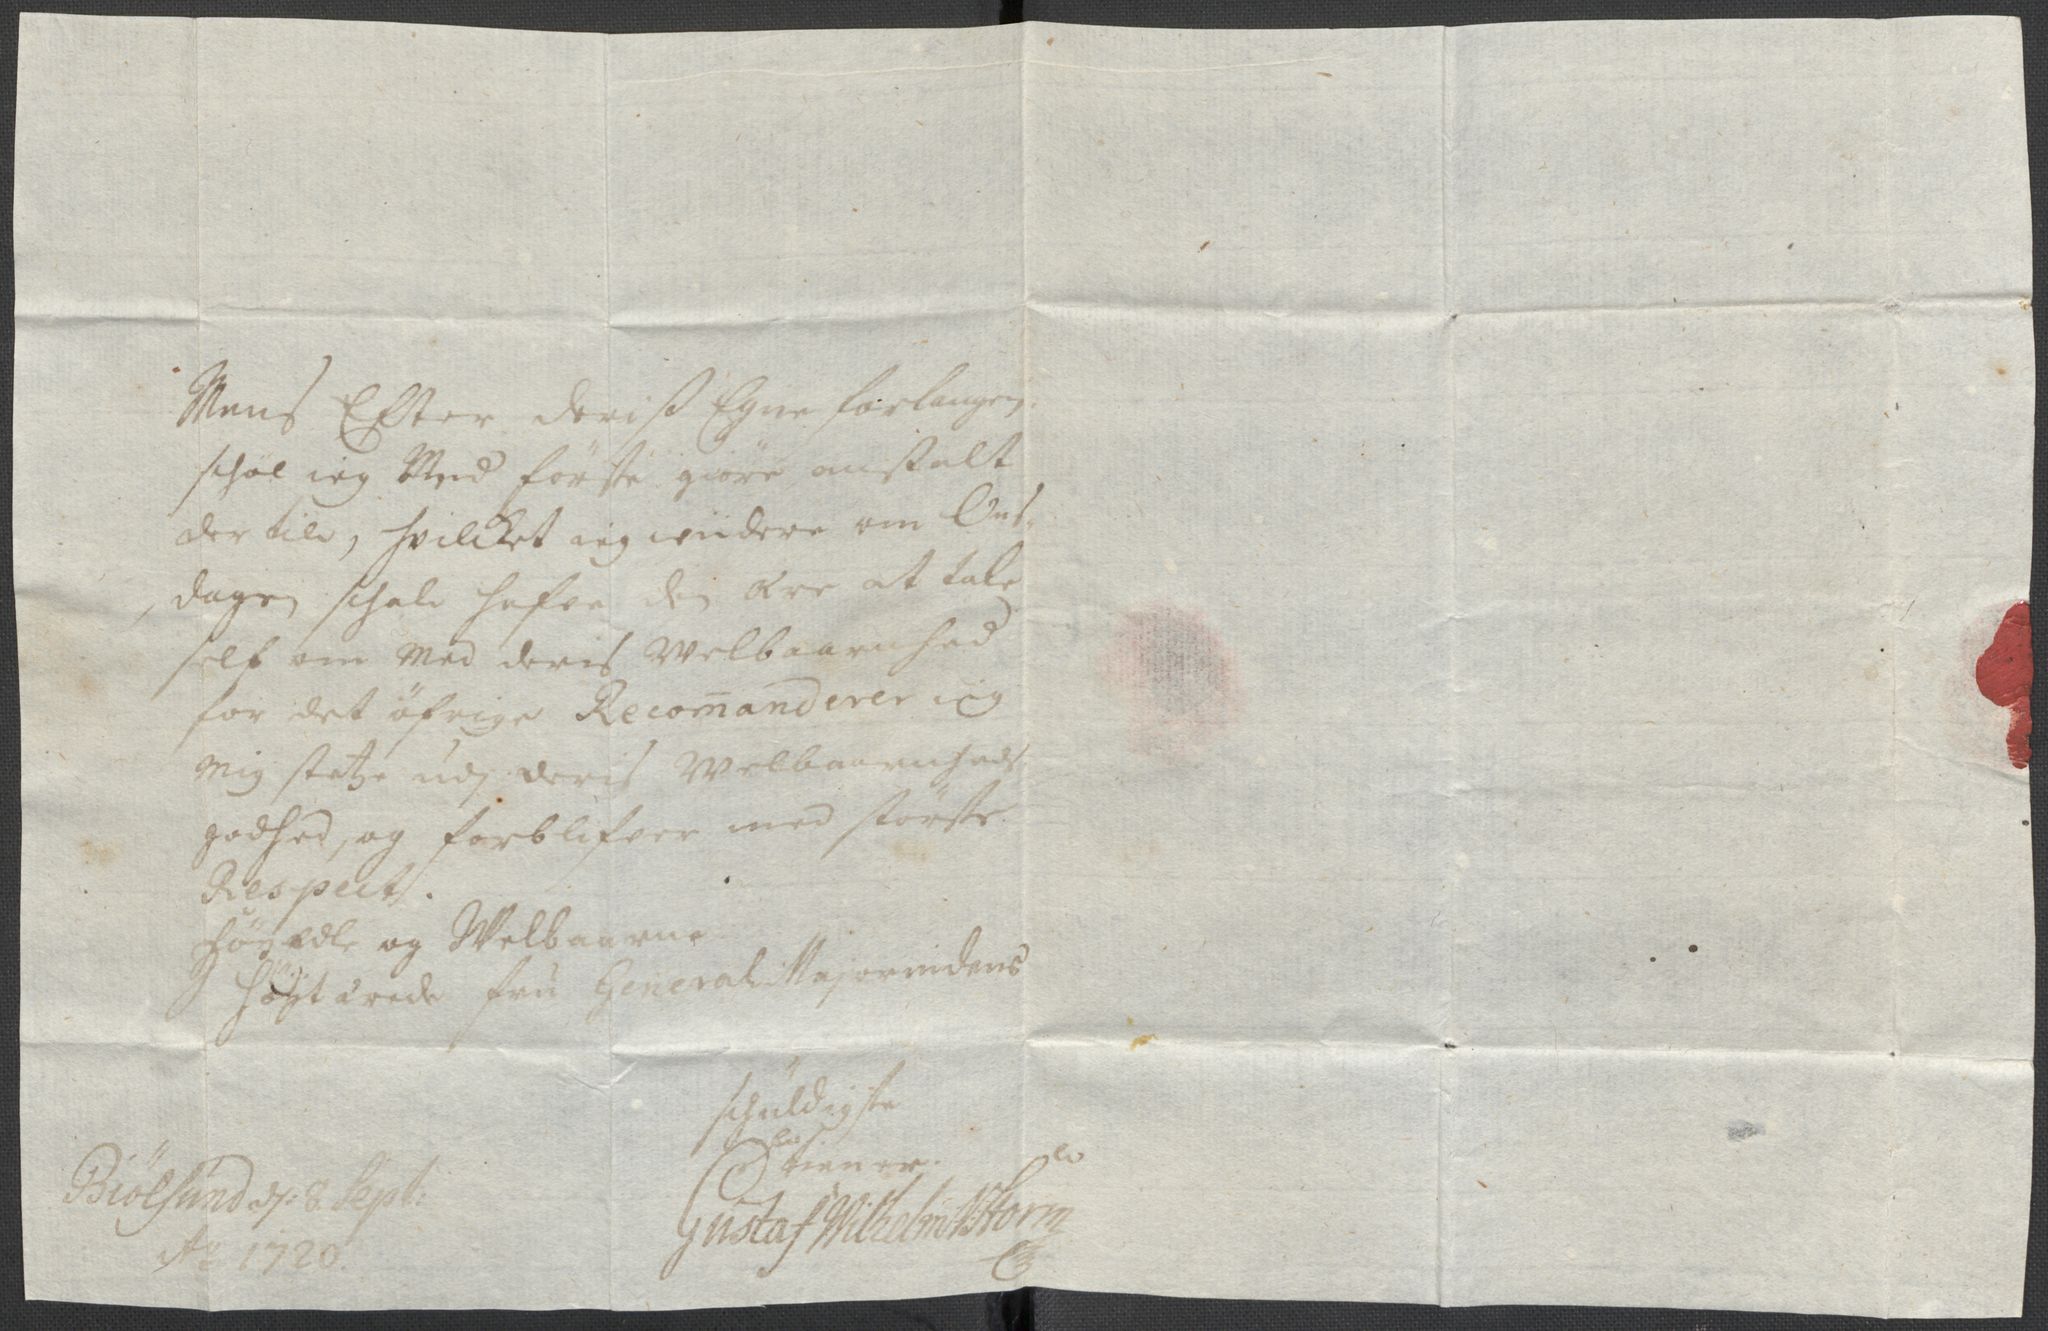 Mens Efter deriß Egne forlangen
schal ieg Med förste giöre anstalt
der till, hvilcket ieg widere om Ons-
dagen schall hafve den ære at tale
self om med deris Welbaarnhed
for det öfrige Recom̄anderer ieg
mig stetze udj deris Welbaarnheds
godhed, og forblifver med störste
Respect.
Höyædle og Welbaarne
Höyt ærede frü General Majorindens
schüldigste
tiener.
Gustaf Wilhelm Storm
Biölsund dj: 8 Sept:
Ao 1720.